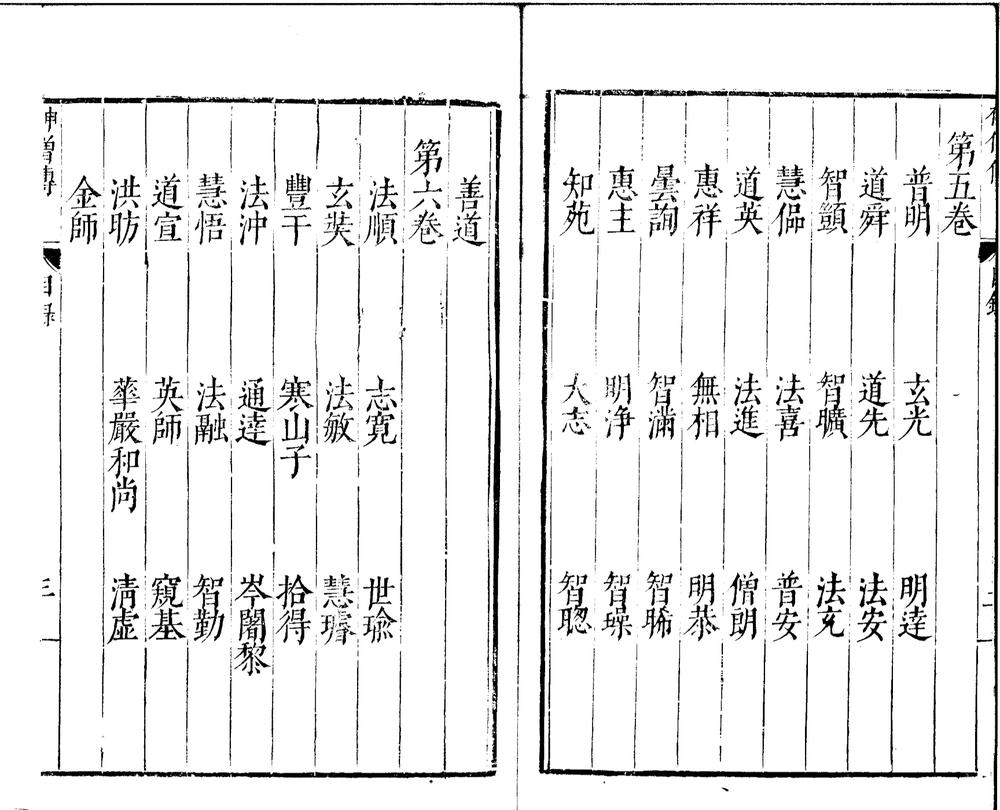 第五卷
普明 玄光 明達
道舜 道先 法安
智顗 智曠 法充
慧偘 法喜 普安
道英 法進 僧朗
惠祥 無相 明恭
曇詢 智滿 智晞
惠主 明淨 智璪
知苑 大志 智聦
善道
第六卷
法順 志寬 世瑜
玄奘 法敏 慧璿
豐干 寒山子 拾得
法沖 通達 岑闍黎
慧悟 法融 智勤
道宣 英師 窺基
洪昉 華嚴和尚 清虛
金師
神僧傳 目録 三